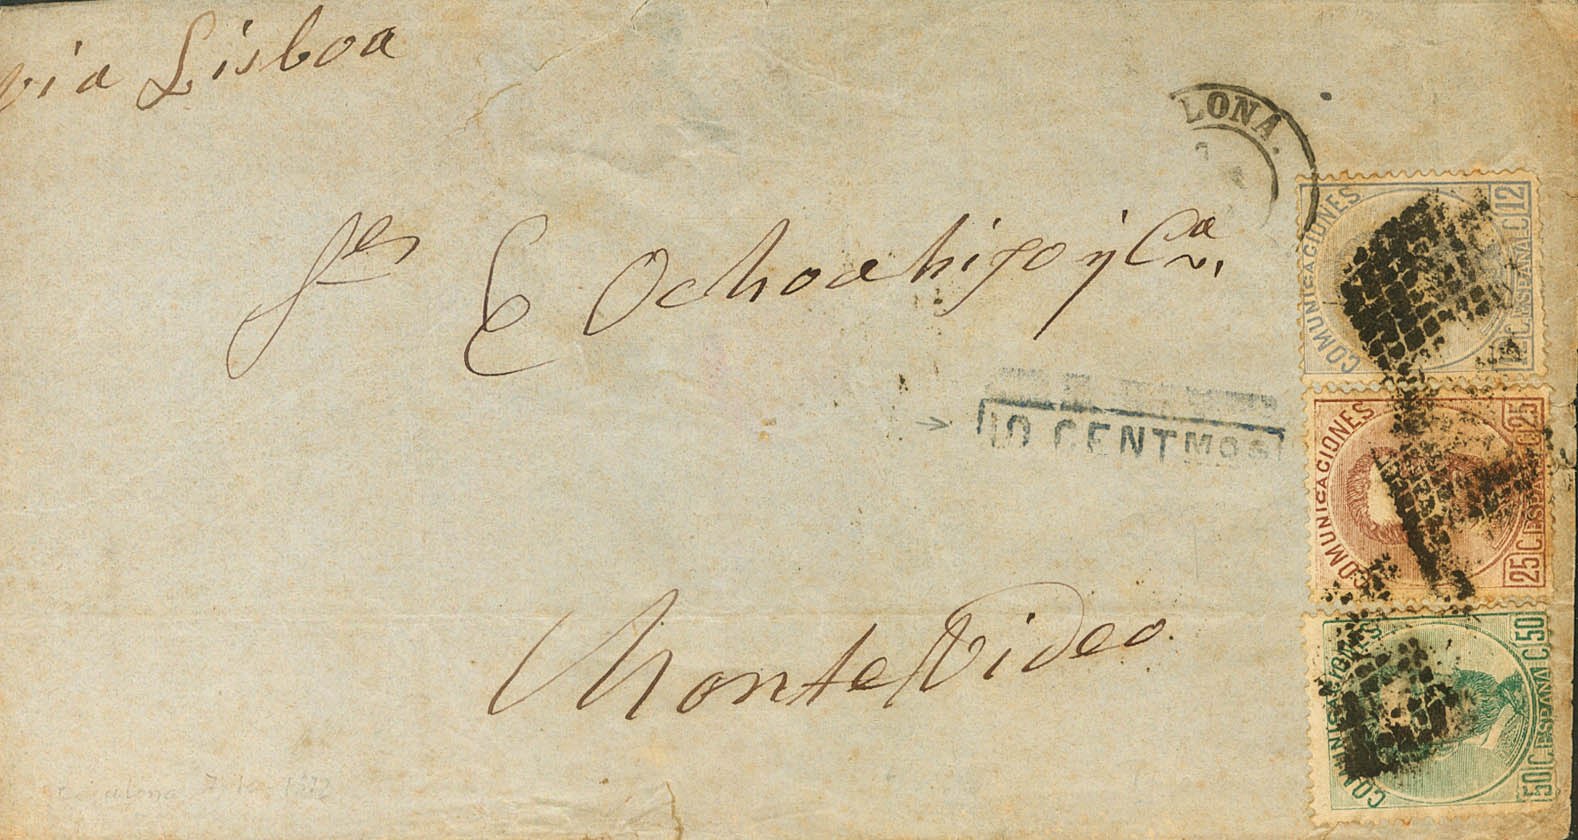 via Lisboa
LONA.
Sres E Ochoa hijo y Ca.
10 CENTMOS
Montevideo
COMUNICACIONES
12 C. ESPAÑA C. 12
COMUNICACIONES
25 C. ESPAÑA C. 25
COMUNICACIONES
50 C. ESPAÑA C. 50